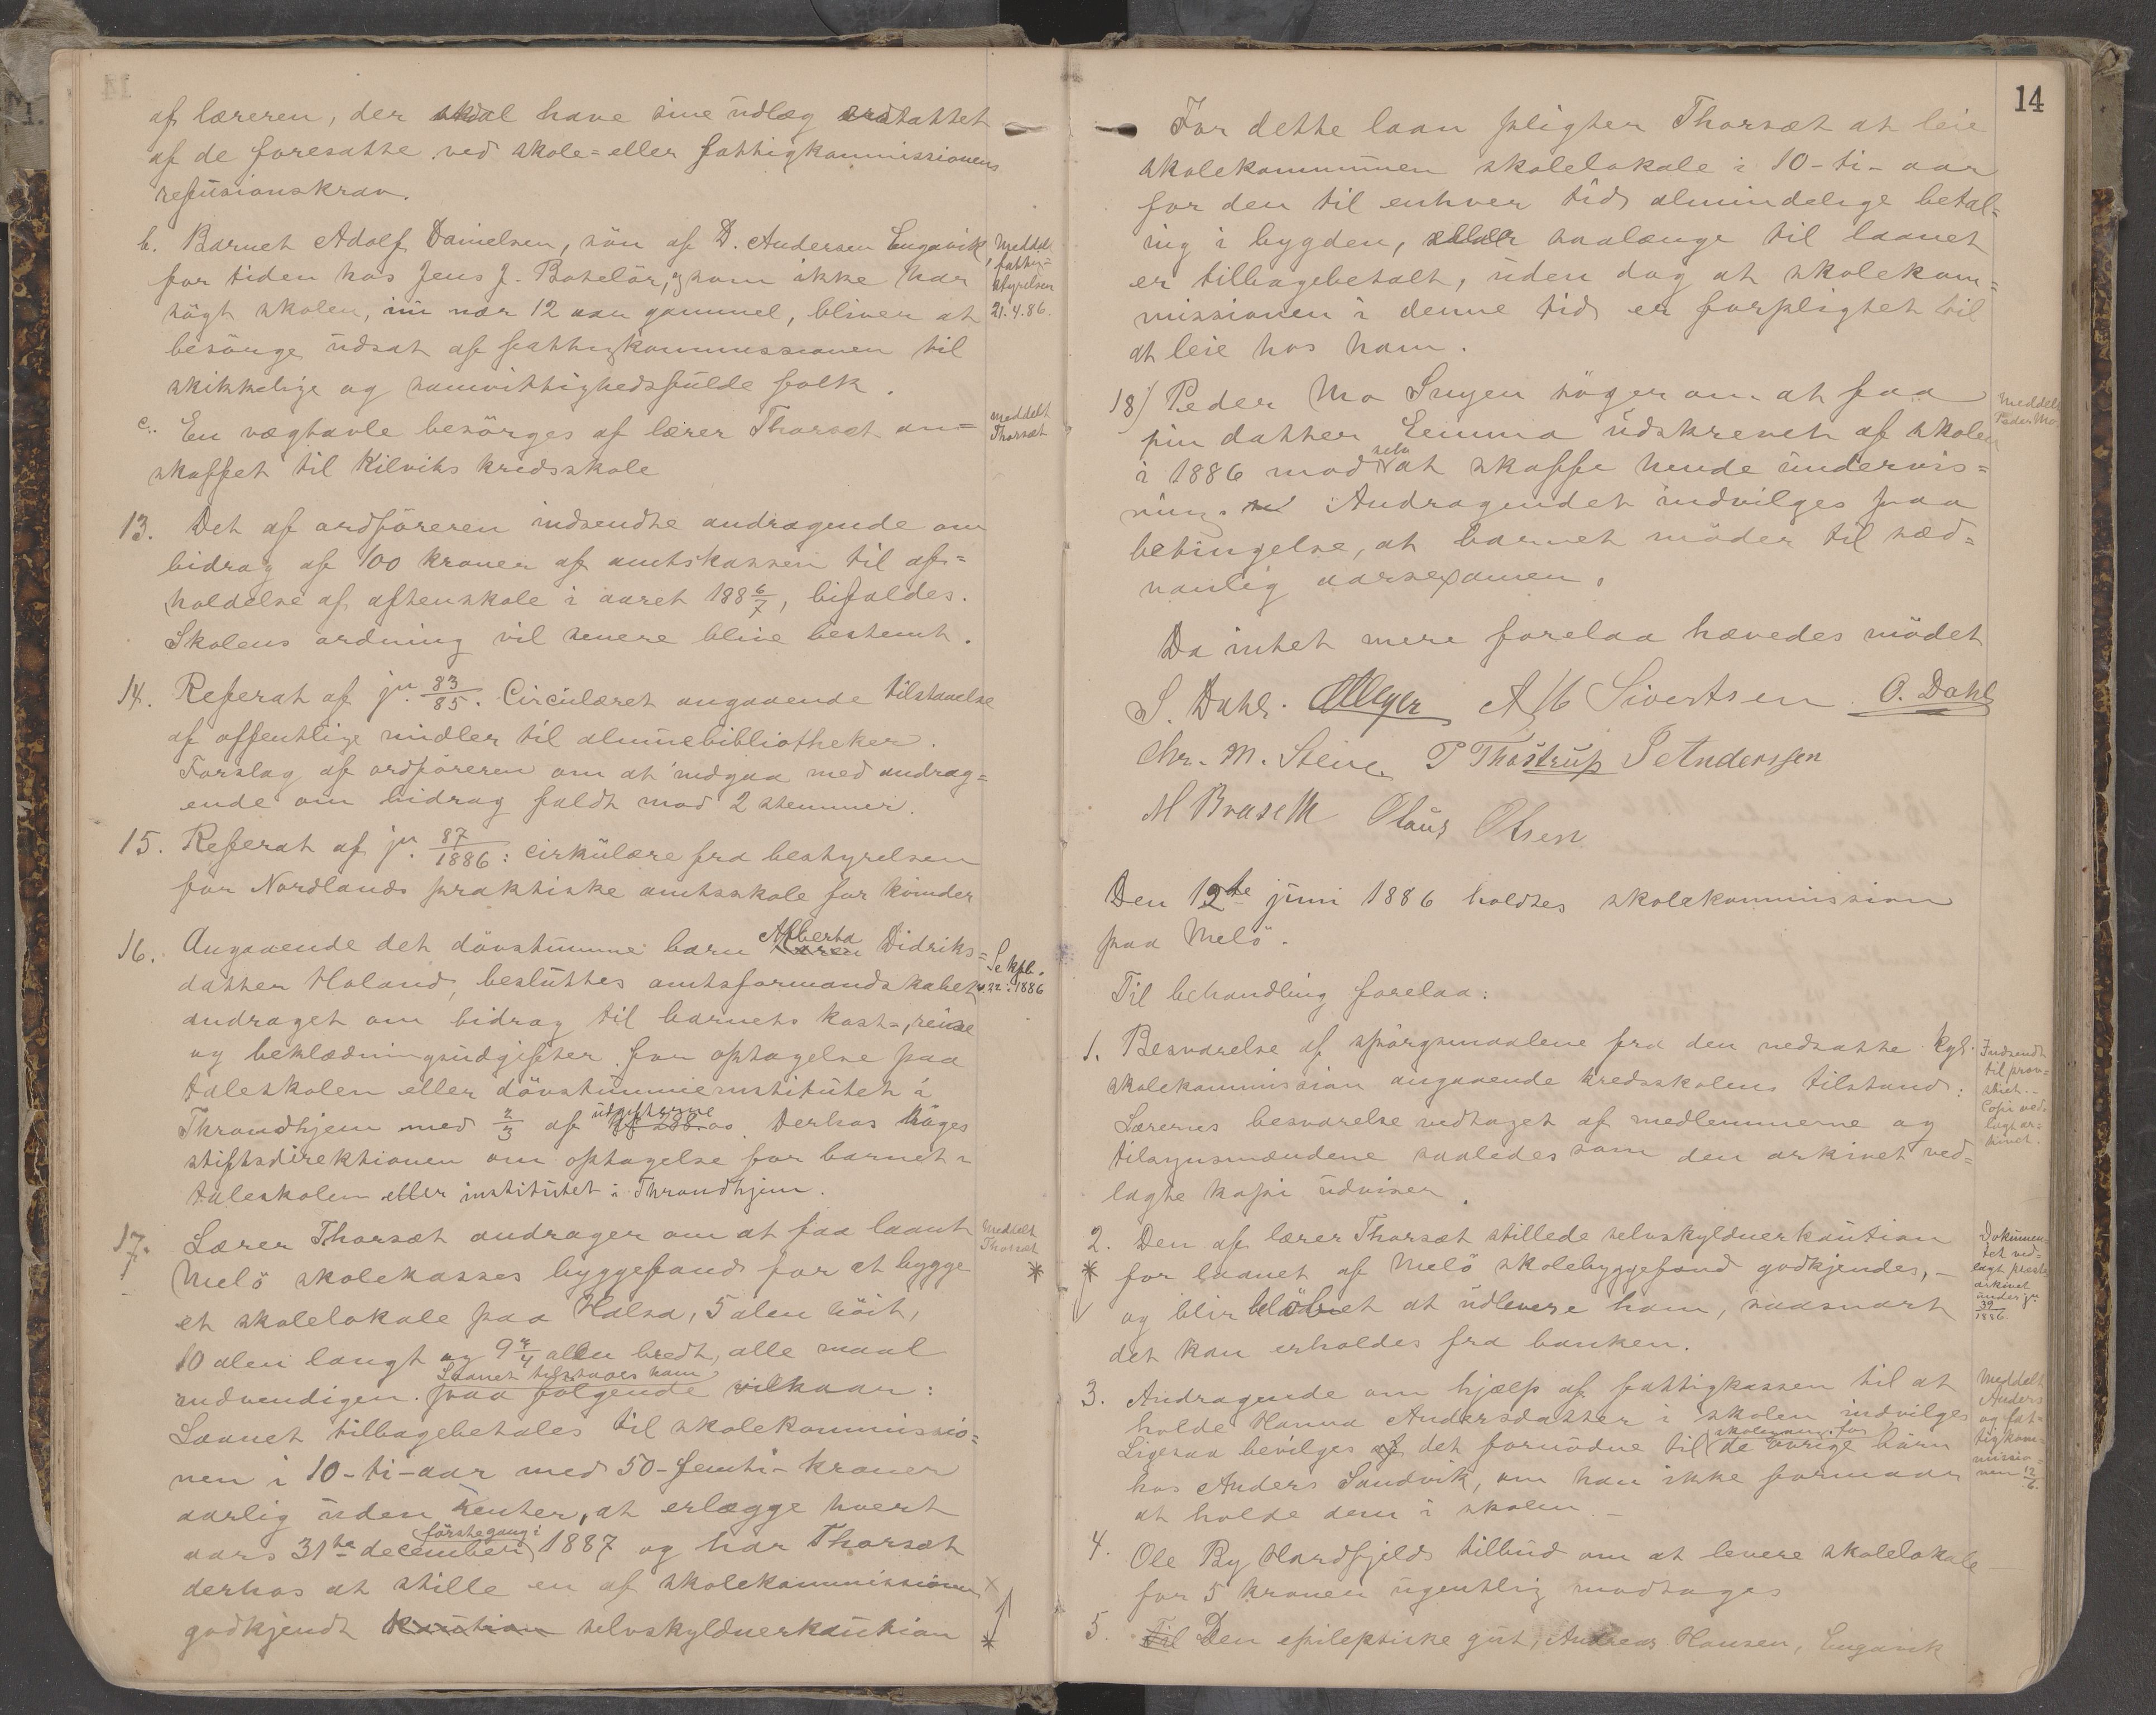 af læreren, der skal have sine udlæg erstattet
af de foresatte ved skole- eller fattigkommissionens
refusionskrav.
b. Barnet Adolf Danielsen, søn af D. Andersen Engavik,
for tiden hos Jens J. Botelør, som ikke har
søgt skolen, nu nær 12 aar gammel, bliver at
besørge udsat af fattigkommissionen til
skikkelige og samvittighedsfulde folk.
Meddelt
fattig-
styrelsen
21.4.86.
c. En vægtavle besørges af lærer Thorsæt an-
skaffet til Kilviks kredsskole
meddelt
Thorsæt
13. Det af ordføreren indsendte andragende om
bidrag af 100 kroner af amtskassen til af-
holdelse af aftenskole i aaret 188 6/7, bifaldes.
Skolens ordning vil senere blive bestemt.
14. Referat af jn. 83/85. Circulæret angaaende tilstaaelse
af offentlige midler til almuebibliotheker.
Forslag af ordføreren om at indgaa med andrag-
ende om bidrag faldt mod 2 stemmer.
15. Referat af jn. 87/1886: cirkulære fra bestyrelsen
for Nordlands praktiske amtsskole for kvinder
16. Angaaende det døvstumme barn Alberta Didriks-
datter Holand, besluttes amtsformandskabet
andraget om bidrag til barnets kost-, reise
og beklædningsudgifter for optagelse paa
taleskolen eller døvstummeinstitutet i
Throndhjem med 2/3 af udgifterne. Derhos søges
stiftsdirektionen om optagelse for barnet i
taleskolen eller institutet i Throndhjem.
Se kpb.
22. 1886
17. Lærer Thorsæt andrager om at faa laant
Melö skolekasses byggefond for at bygge
et skolelokale paa Halsa, 5 alen höit,
10 alen langt og 9 3/4 alen bredt, alle maal
indvendigen. Laanet tilstaaes ham paa følgende vilkaar:
Laanet tilbagebetales til skolekommissio-
nen i 10-ti-aar med 50-femti-kroner
aarlig uden renter, at erlægge hvert
aars 31te december förstegang i 1887 og har Thorsæt
derhos at stille en af skolekommissionen
godkjendt kaution selvskyldnerkaution
meddelt
Thorsæt
14
For dette laan pligter Thorsæt at leie
skolekommunen skolelokale i 10-ti-aar
for den til enhver tid almindelige betal-
ing i bygden, eller saalænge til laanet
er tilbagebetalt, uden dog at skolekom-
missionen i denne tid er forpligtet til
at leie hos ham.
18) Peder Mo Snyen søger om at faa
sin datter Emma udskrevet af skolen
i 1886 mod selv at skaffe hende undervis-
ning. Andragendet indvilges paa
betingelse, at barnet møder til sæd-
vanlig aarsexamen.
Meddelt
Peder Mo
Da intet mere forelaa hævedes mødet
S. Dahl. Meyer A H Sivertsen O. Dahl
Chr. M. Steine P Thostrup P Anderssen
M Braseth Olaus Olsen
Den 12te juni 1886 holdtes skolekommission
paa Melö.
Til behandling forelaa:
1. Besvarelse af spørgsmaalene fra den nedsatte kgl.
skolekommission angaaende kredsskolens tilstand:
Lærernes besvarelse vedtaget af medlemmerne og
tilsynsmændene saaledes som den arkivet ved-
lagte kopi udviser.
Indsendt
til prov-
stiet.
Copi ved-
lagt ar-
kivet.
2. Den af lærer Thorsæt stillede selvskyldnerkaution
for laanet af Melö skolebyggefond godkjendes, –
og blir beløbet at udlevere ham, saasnart
det kan erholdes fra banken.
Dokumen-
tet ved-
lagt preste
arkivet
under jn.
39
1886.
3. Andragende om hjælp af fattigkassen til at
holde Hanna Andersdatter i skolen indvilges
Ligesaa bevilges det fornødne til de øvrige børn
hos Anders Sandvik, om han ikke formaar
at holde dem i skolen –
Meddelt
Anders
og fat-
tigkom-
missio-
nen 12/6.
4. Ole By Hardfjelds tilbud om at levere skolelokale
for 5 kroner ugentlig modtages
5. Til Den epileptiske gut, Andreas Hansen, Engavik